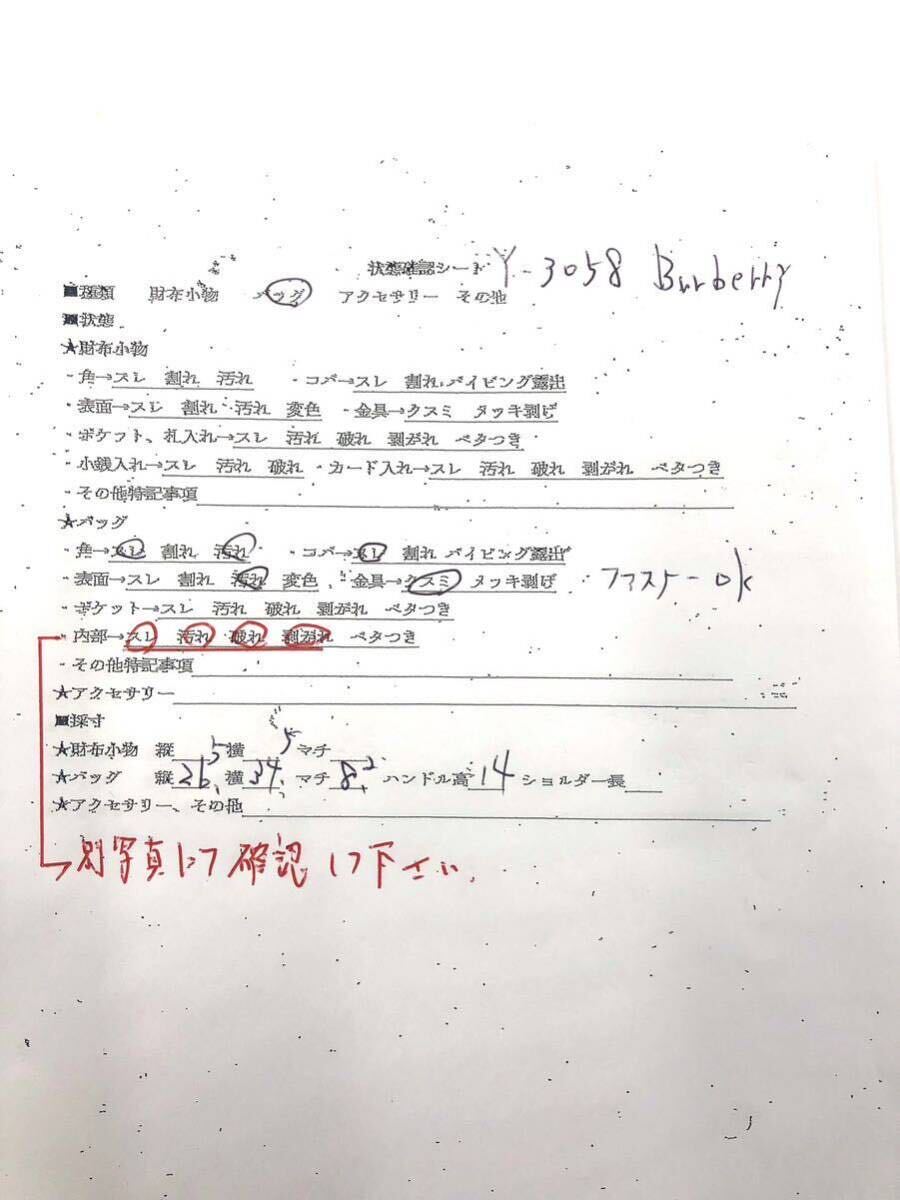 状態確認シート Y-3058 Burberry
■種類 財布小物 バッグ アクセサリー その他
■状態
★財布小物
・角→スレ 割れ 汚れ ・コバ→スレ 割れ パイピング露出
・表面→スレ 割れ 汚れ 変色 ・金具→クスミ メッキ剥げ
・ポケット、札入れ→スレ 汚れ 破れ 剥がれ ベタつき
・小銭入れ→スレ 汚れ 破れ ・カード入れ→スレ 汚れ 破れ 剥がれ ベタつき
・その他特記事項
★バッグ
・角→スレ 割れ 汚れ ・コバ→スレ 割れ パイピング露出
・表面→スレ 割れ 汚れ 変色 ・金具→クスミ メッキ剥げ ファスナーok
・ポケット→スレ 汚れ 破れ 剥がれ ベタつき
・内部→スレ 汚れ 破れ 剥がれ ベタつき
・その他特記事項
★アクセサリー
■採寸
★財布小物 縦 横 マチ
★バッグ 縦26.5 横34.5 マチ8.2 ハンドル高14 ショルダー長
★アクセサリー、その他
別写真にて確認して下さい.